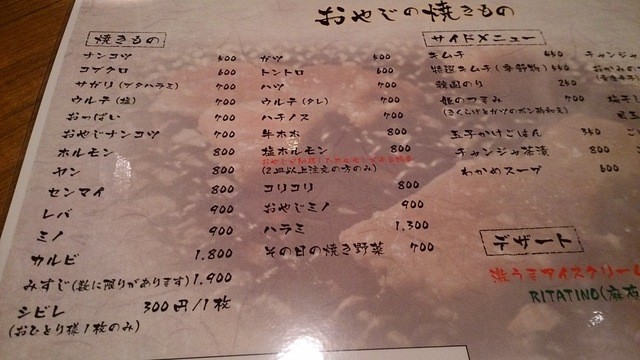 おやじの焼きもの
焼きもの
ナンコツ 600
コブクロ 600
サガリ(ブタハラミ) 700
ウルテ(塩) 700
おっぱい 700
おやじナンコツ 700
ホルモン 800
ヤン 800
センマイ 800
レバ 900
ミノ 900
カルビ 1.800
みすじ(数に限りがあります) 1.900
シビレ 300円/1枚
(おひとり様1枚のみ)
ガツ 600
トントロ 600
ハツ 700
ウルテ(タレ) 700
ハチノス 700
牛ホホ 800
塩ホルモン 800
(2皿以上注文の方のみ)
コリコリ 800
おやじミノ 900
ハラミ 1.300
その日の焼き野菜 700
サイドメニュー
キムチ
特選キムチ(季節物)
韓国のり
700
玉子かけごはん
チャンジャ茶漬 800
わかめスープ 600
チャンジャ
デザート
RITATINO(麻布